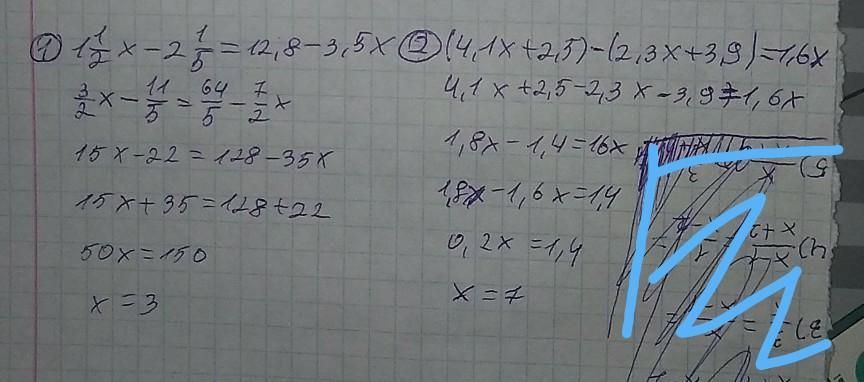 ① 1 1/2 x - 2 1/5 = 12,8 - 3,5x
3/2 x - 11/5 = 64/5 - 7/2 x
15x - 22 = 128 - 35x
15x + 35 = 128 + 22
50x = 150
x = 3
② (4,1x + 2,5) - (2,3x + 3,9) = 1,6x
4,1x + 2,5 - 2,3x - 3,9 = 1,6x
1,8x - 1,4 = 16x
1,8x - 1,6x = 1,4
0,2x = 1,4
x = 7
5)
4)
3)